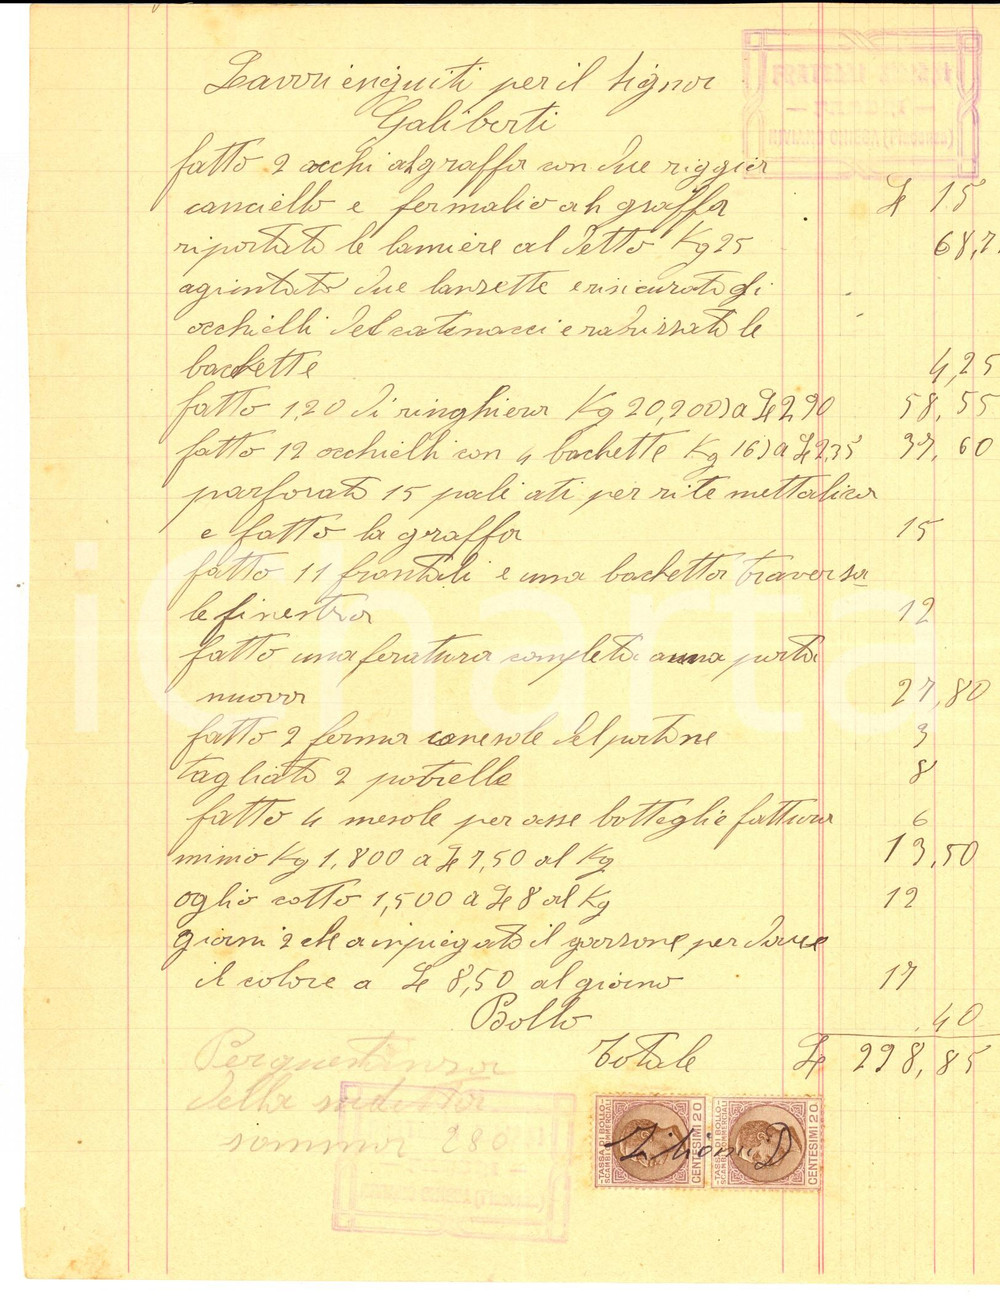 Lavori eseguiti per il signor
Galiberti
FRATELLI
FABBRI
fatto 2 occhi al graffa con due riggior
canciello e fermalio al graffa £ 15
riportato le lamiere al detto Kg 25 68,7
agiuntato due lansette e risicurato gli
occhielli del catenacci e radrissato le
bachette 4,25
fatto 1,20 di ringhiera Kg 20,200) a £ 2,90 58,55
fatto 12 occhielli con 4 bachette Kg 16) a £ 2,35 37,60
parforato 15 pali ati per rite mettalica
e fatto la graffa 15
fatto 11 frontali e una bachetta traversa
le finestra 12
fatto una feratura completa a una porta
nuova 27,80
fatto 2 ferma del portone 3
tagliato 2 potrelle 8
fatto 4 mesole per asse bottiglie fattura 6
minio Kg 1,800 a £ 7,50 al Kg 13,50
oglio cotto 1,500 a £ 8 al Kg 12
giorni 2 che a inpiegato il garsone per dare
il colore a £ 8,50 al giorno 17
Bollo ,40
Totale £ 298,85
Per quietansa
della sudetta
somma 280
TASSA DI BOLLO
SCAMBI COMMERCIALI
CENTESIMI 20
TASSA DI BOLLO
SCAMBI COMMERCIALI
CENTESIMI 20
iCharta